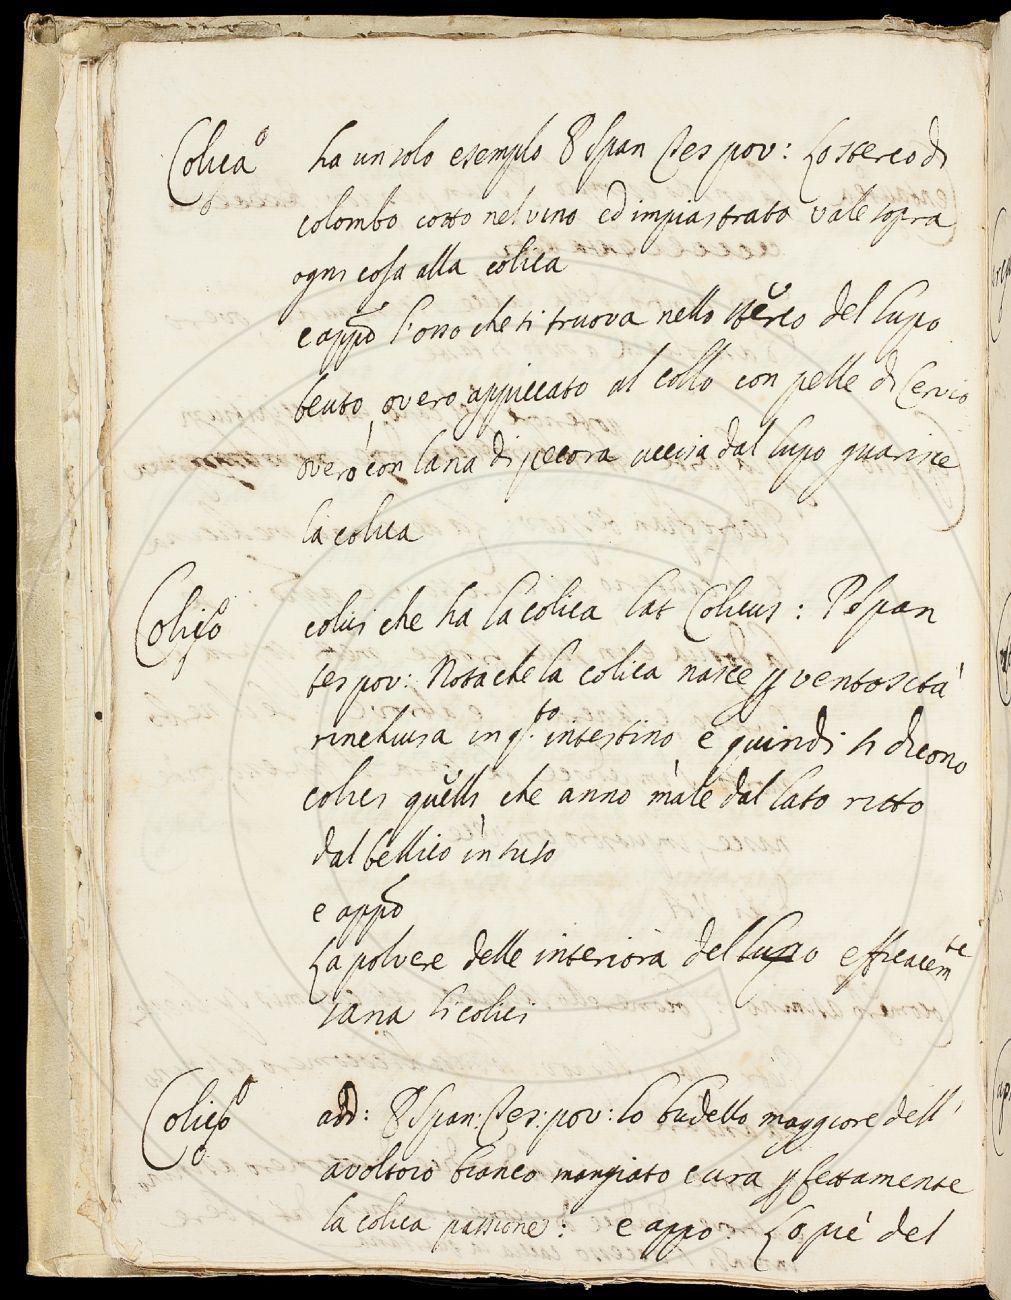 Colica ha un solo esemplo P Span Tes pov: Lo sterco di
colombo cotto nel vino ed impiastrato vale sopra
ogni cosa alla colica
e appo l'osso che si truova nello sterco del lupo
beuto, overo appiccato al collo con pelle di Cervio
overo con lana di pecora uccisa dal lupo guarisce
la colica
Colico colui che ha la colica lat Colicus: P Span
tes pov: Nota che la colica nasce p ventosità
rinchiusa in q.to intestino e quindi si dicono
colici quelli che anno male dal lato ritto
dal bellico in suso
e appo
La polvere delle interiora del lupo efficacemte
sana li colici
Colico add: P Span: Tes: pov: lo budello maggiore dell'
avoltoio bianco mangiato cura pfettamente
la colica passione: e appo: Lo piè del